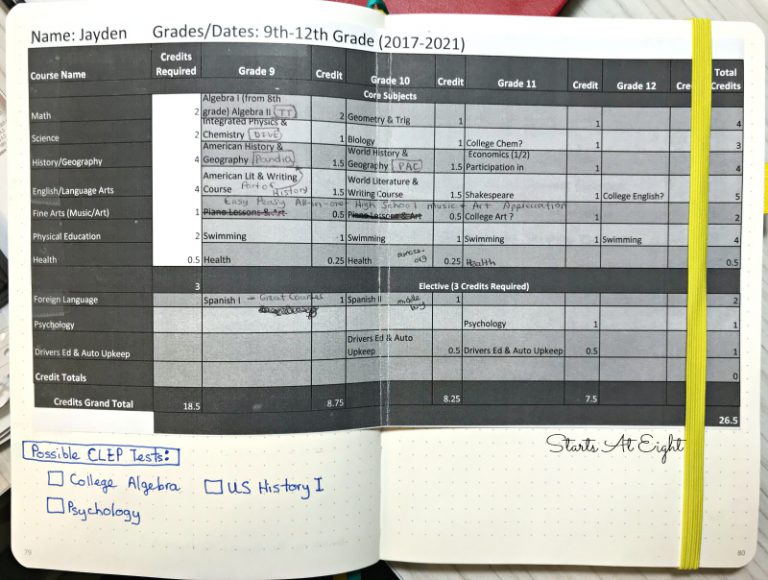 Name: Jayden Grades/Dates: 9th-12th Grade (2017-2021)
Course Name Credits Required Grade 9 Credit Grade 10 Credit Grade 11 Credit Grade 12 Total Credits
Core Subjects
Math 2 Algebra I (from 8th grade) Algebra II (TT) 2 Geometry & Trig 1 1 4
Science 2 Integrated Physics & Chemistry (DIVE) 1 Biology 1 College Chem? 1 3
History/Geography 4 American History & Geography (Pandia) 1.5 World History & Geography (PAC) 1.5 Economics (1/2) Participation in 1 4
English/Language Arts 4 American Lit & Writing Course Part of History 1.5 World Literature & Writing Course 1.5 Shakespeare 1 College English? 1 5
Easy Peasy All-in-one High School music + Art Appreciation
Fine Arts (Music/Art) 1 Piano Lessons & Art 0.5 Piano Lessons & Art 0.5 College Art ? 1 2
Physical Education 2 Swimming 1 Swimming 1 Swimming 1 Swimming 4
Health 0.5 Health 0.25 Health 0.25 Health 0.5
3 Elective (3 Credits Required)
Foreign Language Spanish I - Great Courses 1 Spanish II 1 2
Psychology Psychology 1 1
Drivers Ed & Auto Upkeep Drivers Ed & Auto Upkeep 0.5 Drivers Ed & Auto Upkeep 0.5 1
Credit Totals 0
Credits Grand Total 18.5 8.75 8.25 7.5 26.5
Starts At Eight
Possible CLEP Tests:
College Algebra
US History I
Psychology
79
80